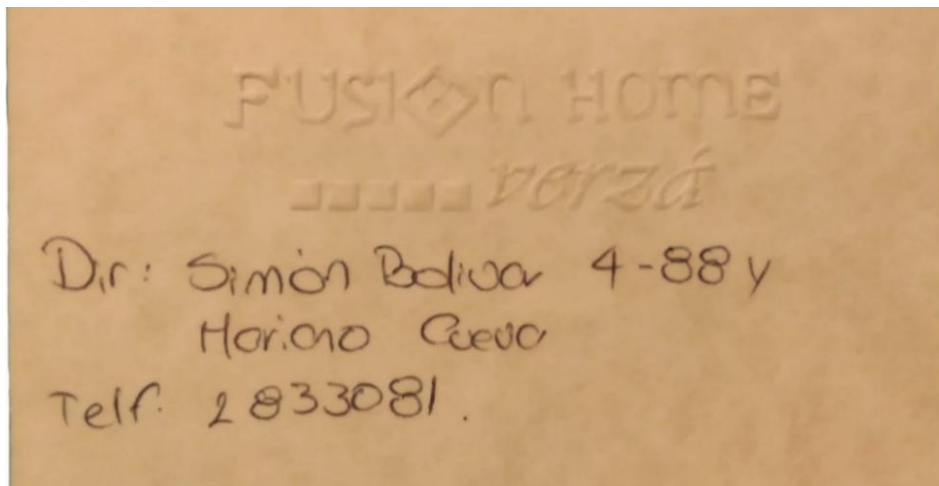 FUSION HOME
verzá
Dir: Simón Bolivar 4-88 y
Mariano Cueva
Telf. 2833081.